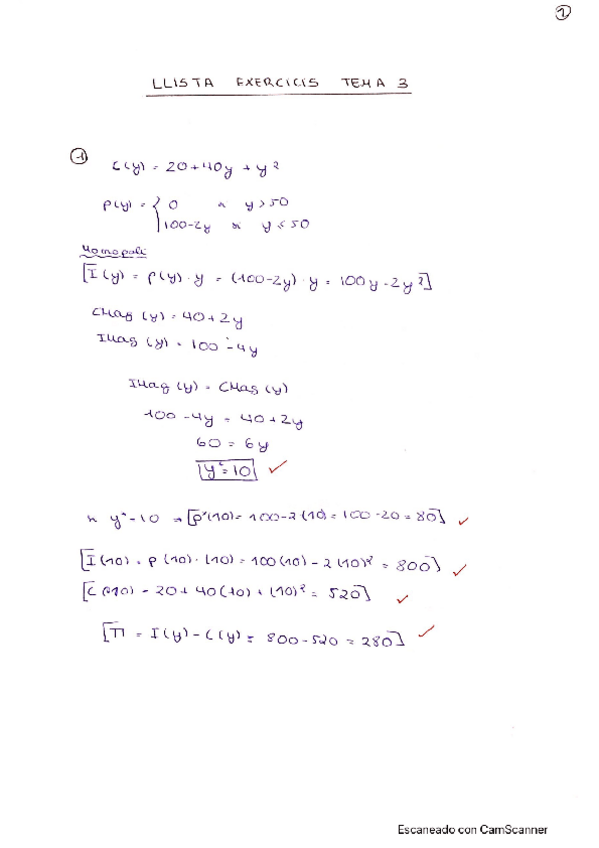 1
LLISTA EXERCICIS TEMA 3
1 C(y) = 20 + 40y + y²
p(y) = { 0 si y > 50
100-2y si y ≤ 50
Monopoli
[I(y) = p(y) · y = (100-2y) · y = 100y - 2y²]
CMag (y) = 40 + 2y
IMag (y) = 100 - 4y
IMag (y) = CMag (y)
100 - 4y = 40 + 2y
60 = 6y
y* = 10 ✓
si y* = 10 → [p*(10) = 100 - 2(10) = 100 - 20 = 80] ✓
[I(10) = p(10) · (10) = 100(10) - 2(10)² = 800] ✓
[C(10) = 20 + 40(10) + (10)² = 520] ✓
[Π = I(y) - C(y) = 800 - 520 = 280] ✓
Escaneado con CamScanner